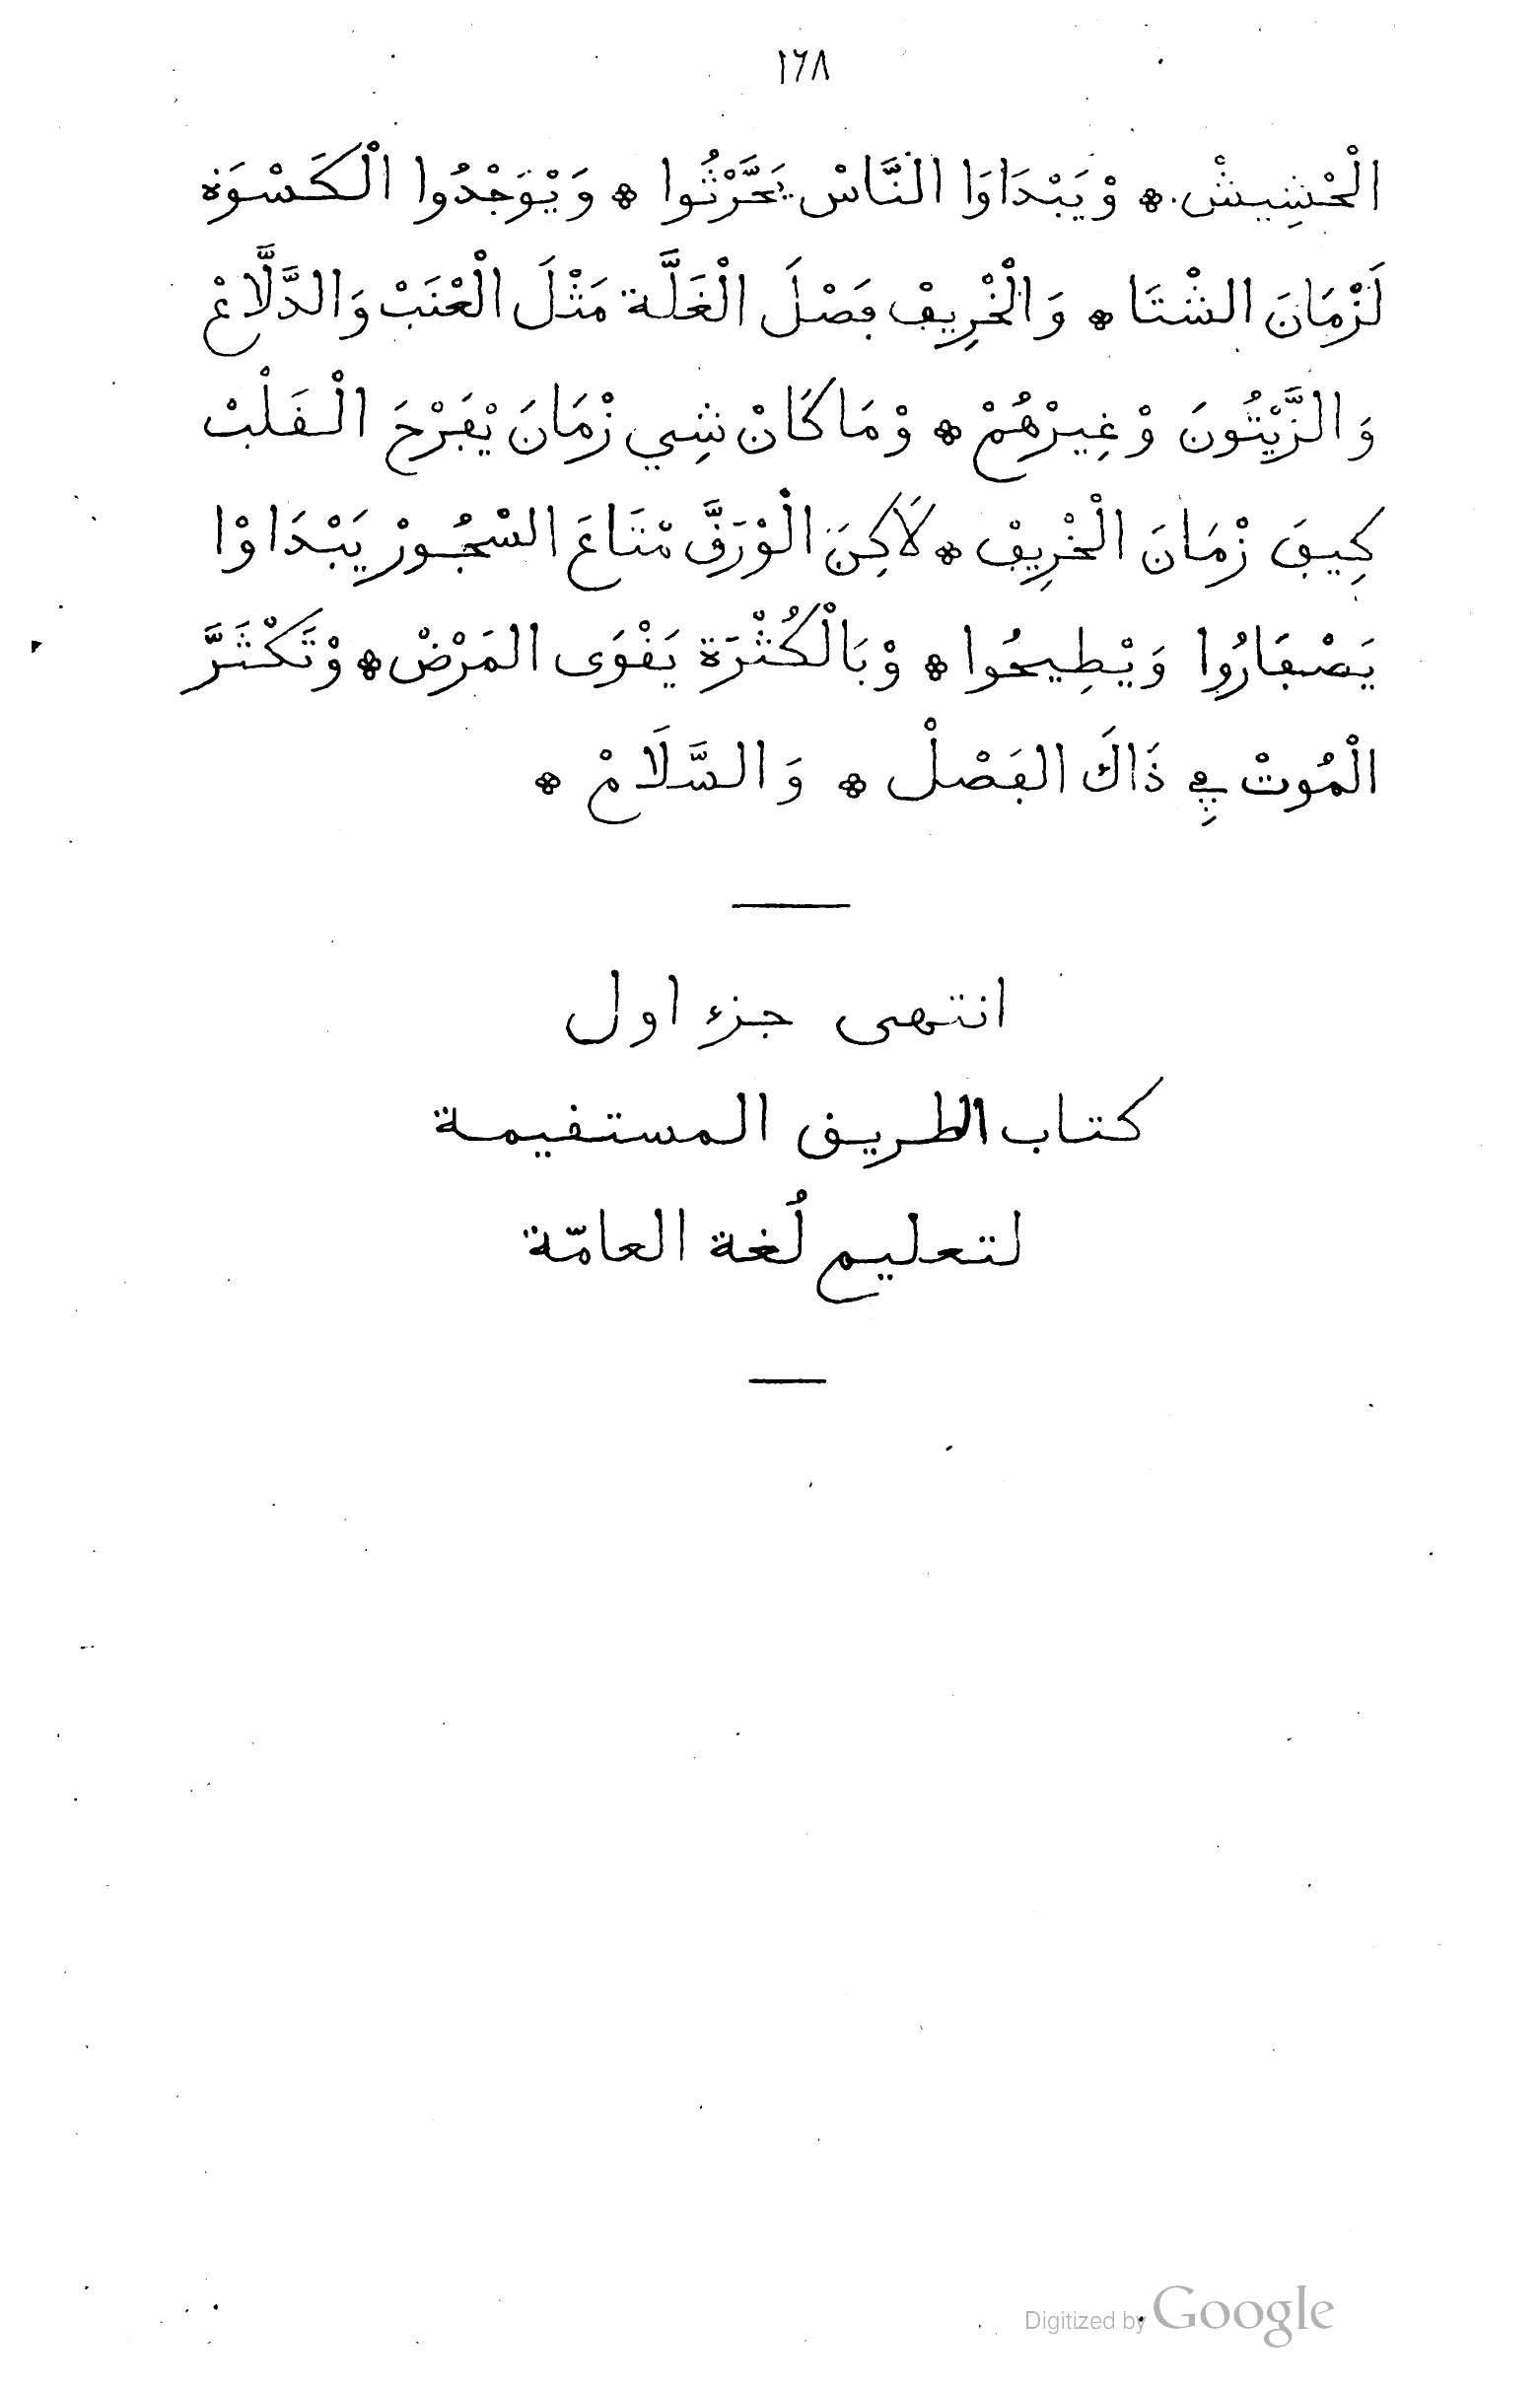 ١٦٨
الْحْشِيشْ * وْيَبْدَاوَا النَّاسْ يَحَّرْثُوا * وَيْوَجْدُوا الْكَسْوَة
لَزْمَانَ الشْتَا * وَالْخْرِيڢْ ڢَصْلَ الْغَلَّة مَثْلَ الْعْنَبْ وَالدَّلَّاعْ
وَالزَّيْتُونَ وْغِيرْهُمْ * وْمَا كَانْ شِي زْمَانَ يْڢَرْحَ الْڧَلْبْ
كِيڢَ زْمَانَ الْخْرِيڢْ * لَاكِنَ الْوْرَڧَّ مْتَاعَ السْجُورْ يَبْدَاوْا
يَصْڢَارُوا وَيْطِيحُوا * وْبَالْكُثْرَة يَڧْوَى المَرْضْ * وْتَكْثَرَّ
الْمُوتْ ڢِي ذَاكَ الڢَصْلْ * وَالسَّلَامْ *
انتهى جزء اول
كتاب الطريڧ المستڧيمة
لتعليم لُغة العامّة
Digitized by Google